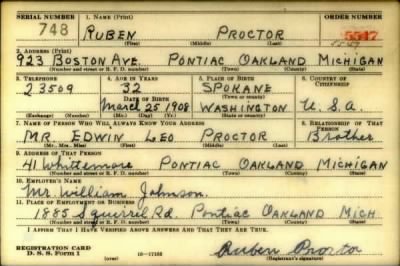 SERIAL NUMBER 1. NAME (Print) ORDER NUMBER
748 RUBEN PROCTOR 5547
(First) (Middle) (Last)
2. ADDRESS (Print)
923 BOSTON AVE. PONTIAC OAKLAND MICHIGAN
(Number and street or R. F. D. number) (Town) (County) (State)
3. TELEPHONE 4. AGE IN YEARS 5. PLACE OF BIRTH 6. COUNTRY OF CITIZENSHIP
23509 32 SPOKANE
(Town or county)
DATE OF BIRTH
March 25 1908 WASHINGTON U.S.A.
(Exchange) (Number) (Mo.) (Day) (Yr.) (State or country)
7. NAME OF PERSON WHO WILL ALWAYS KNOW YOUR ADDRESS 8. RELATIONSHIP OF THAT PERSON
MR. EDWIN LEO PROCTOR Brother
(Mr., Mrs., Miss) (First) (Middle) (Last)
9. ADDRESS OF THAT PERSON
41 Whittemore PONTIAC OAKLAND MICHIGAN
(Number and street or R. F. D. number) (Town) (County) (State)
10. EMPLOYER'S NAME
Mr. William Johnson.
11. PLACE OF EMPLOYMENT OR BUSINESS
1885 Squirrel Rd. Pontiac OAKLAND MICH.
(Number and street or R. F. D. number) (Town) (County) (State)
I AFFIRM THAT I HAVE VERIFIED ABOVE ANSWERS AND THAT THEY ARE TRUE.
REGISTRATION CARD
D. S. S. Form 1 16-17105 Ruben Proctor
(Registrant's signature)